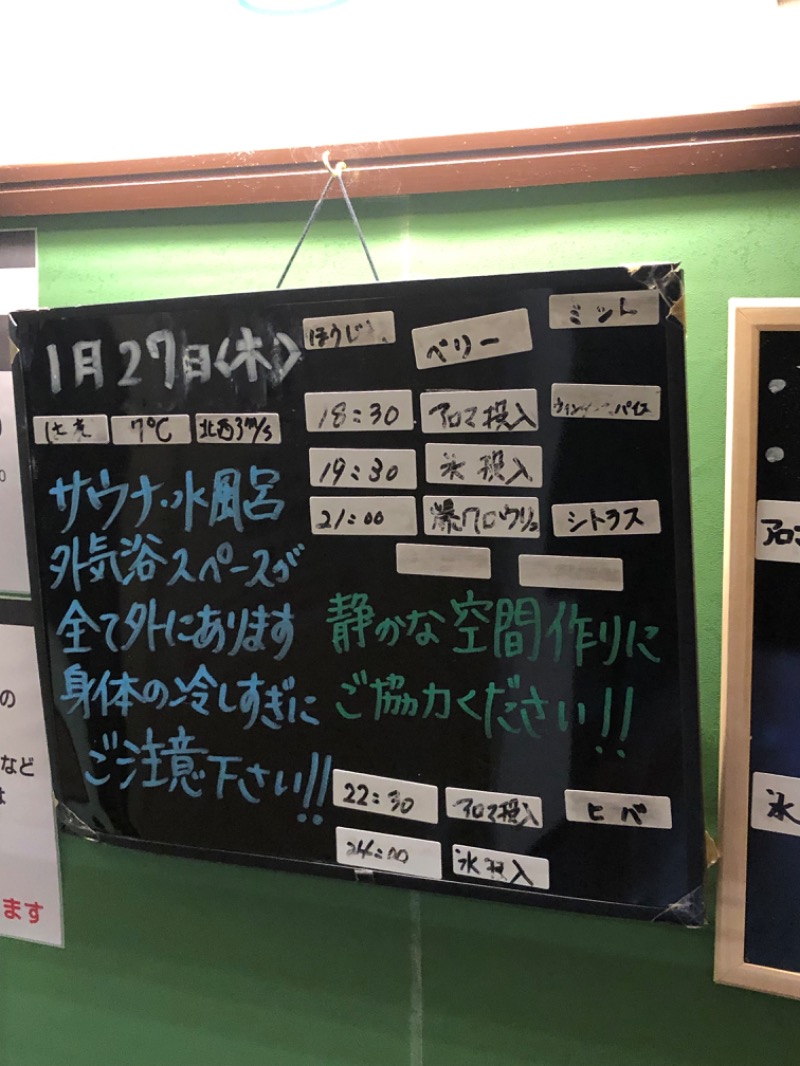 1月27日(木)
ベリー
ミント
7℃
北西3m/s
18:30
アロマ投入
19:30
氷投入
21:00
爆アロウリュ
シトラス
サウナ・水風呂
外気浴スペースが
全て外にあります
身体の冷しすぎに
ご注意下さい!!
静かな空間作りに
ご協力ください!!
22:30
アロマ投入
ヒバ
24:00
氷投入
の
など
ます
アロマ
氷